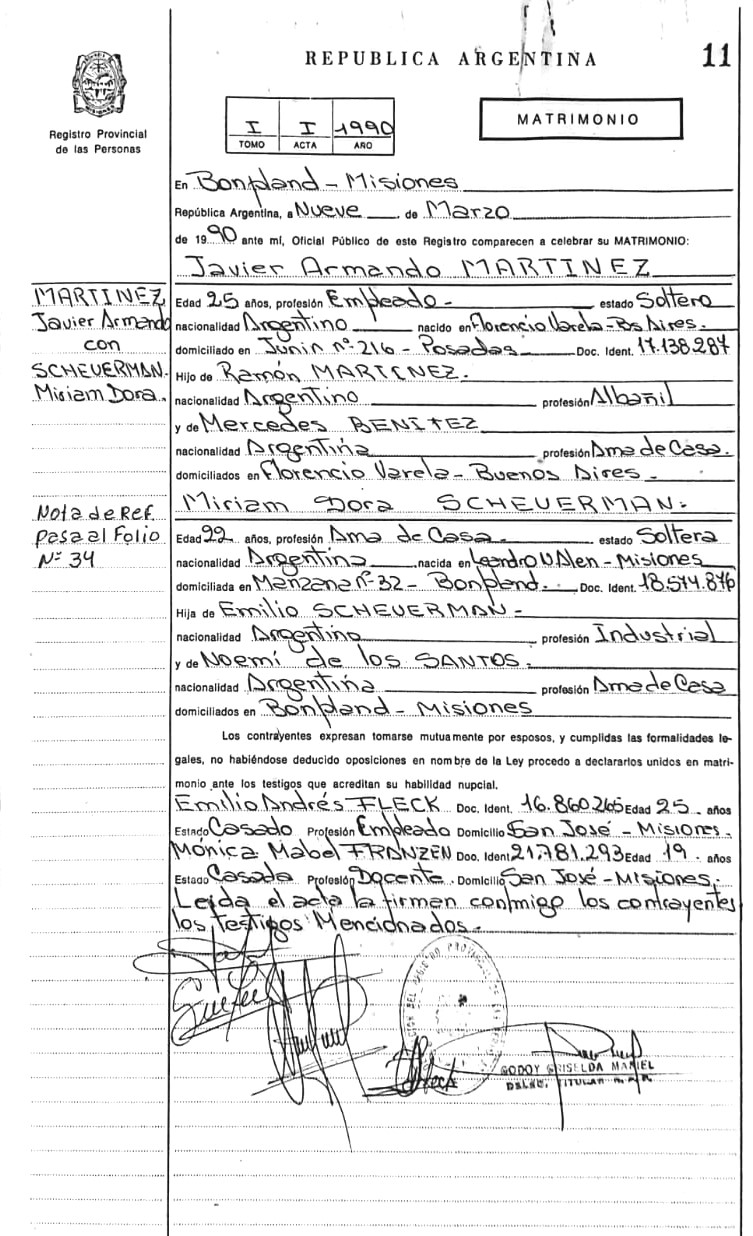 REPUBLICA ARGENTINA
11
Registro Provincial
de las Personas
I I 1990
TOMO ACTA AÑO
MATRIMONIO
En Bonpland - Misiones
República Argentina, a Nueve de Marzo
de 1990 ante mí, Oficial Público de este Registro comparecen a celebrar su MATRIMONIO:
Javier Armando MARTINEZ
MARTINEZ
Javier Armando
con
SCHEUERMAN.
Miriam Dora.
Edad 25 años, profesión Empleado - estado Soltero
nacionalidad Argentino nacido en Florencio Varela - Bs Aires.
domiciliado en Junín nº 216 - Posadas Doc. Ident. 17.138.287
Hijo de Ramón MARTINEZ.
nacionalidad Argentino profesión Albañil
y de Mercedes BENITEZ
nacionalidad Argentina profesión Ama de Casa.
domiciliados en Florencio Varela - Buenos Aires -
Miriam Dora SCHEUERMAN.
Nota de Ref.
pasa al Folio
Nº 34
Edad 22 años, profesión Ama de Casa estado Soltera
nacionalidad Argentina nacida en Leandro N Alen - Misiones
domiciliada en Manzana nº 32 - Bonpland. Doc. Ident. 18.574.876
Hija de Emilio SCHEUERMAN -
nacionalidad Argentino profesión Industrial
y de Noemí de los SANTOS.
nacionalidad Argentina profesión Ama de Casa
domiciliados en Bonpland - Misiones
Los contrayentes expresan tomarse mutuamente por esposos, y cumplidas las formalidades le-
gales, no habiéndose deducido oposiciones en nombre de la Ley procedo a declararlos unidos en matri-
monio ante los testigos que acreditan su habilidad nupcial.
Emilio Andrés FLECK Doc. Ident. 16.860.265 Edad 25 años
Estado Casado Profesión Empleado Domicilio San José - Misiones.
Mónica Mabel FRANZEN Doc. Ident 21.781.293 Edad 19 años
Estado Casada Profesión Docente. Domicilio San José - Misiones.
Leída el acta la firman conmigo los contrayentes
los testigos Mencionados.
Fleck
GODOY GRISELDA MARIEL
TITULAR